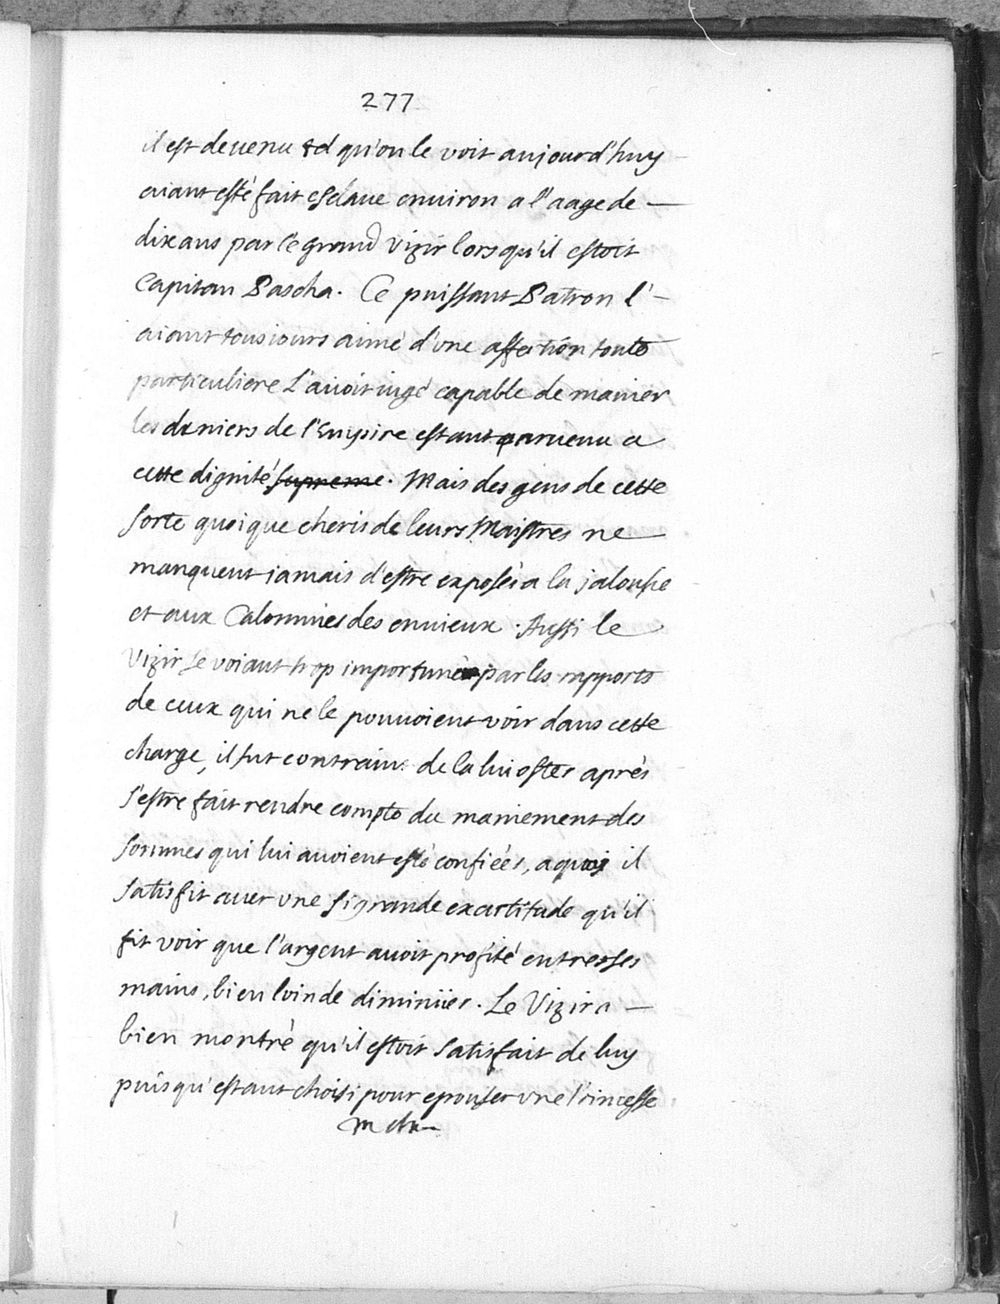 277
il est deuenu tel qu'on le voit aujourd'huy
aiant esté fait esclaue enuiron a l'aage de —
dix ans par le grand Vizir lors qu'il estoit
Capitan Bascha. Ce puissant Patron l'—
aiant tousiours aimé d'vne affection toute
particuliere l'auoit iugé capable de manier
les deniers de l'Empire estant paruenu a
cette dignité supreme. Mais des gens de cette
sorte quoique cheris de leurs Maistres ne
manquent iamais d'estre exposéz a la jalousie
et aux Calomnies des enuieux. Aussi le
Vizir se voiant trop importuné par les rapports
de ceux qui ne le pouuoient voir dans cette
charge, il fut contraint de la lui oster aprés
s'estre fait rendre compte du maniement des
sommes qui lui auoient esté confiées, a quoi il
satisfit auec vne si grande exactitude qu'il
fit voir que l'argent auoit profité entre ses
mains, bien loin de diminüer. Le Vizir a —
bien montré qu'il estoit satisfait de luy
puisqu'estant choisi pour epouser vne Princesse